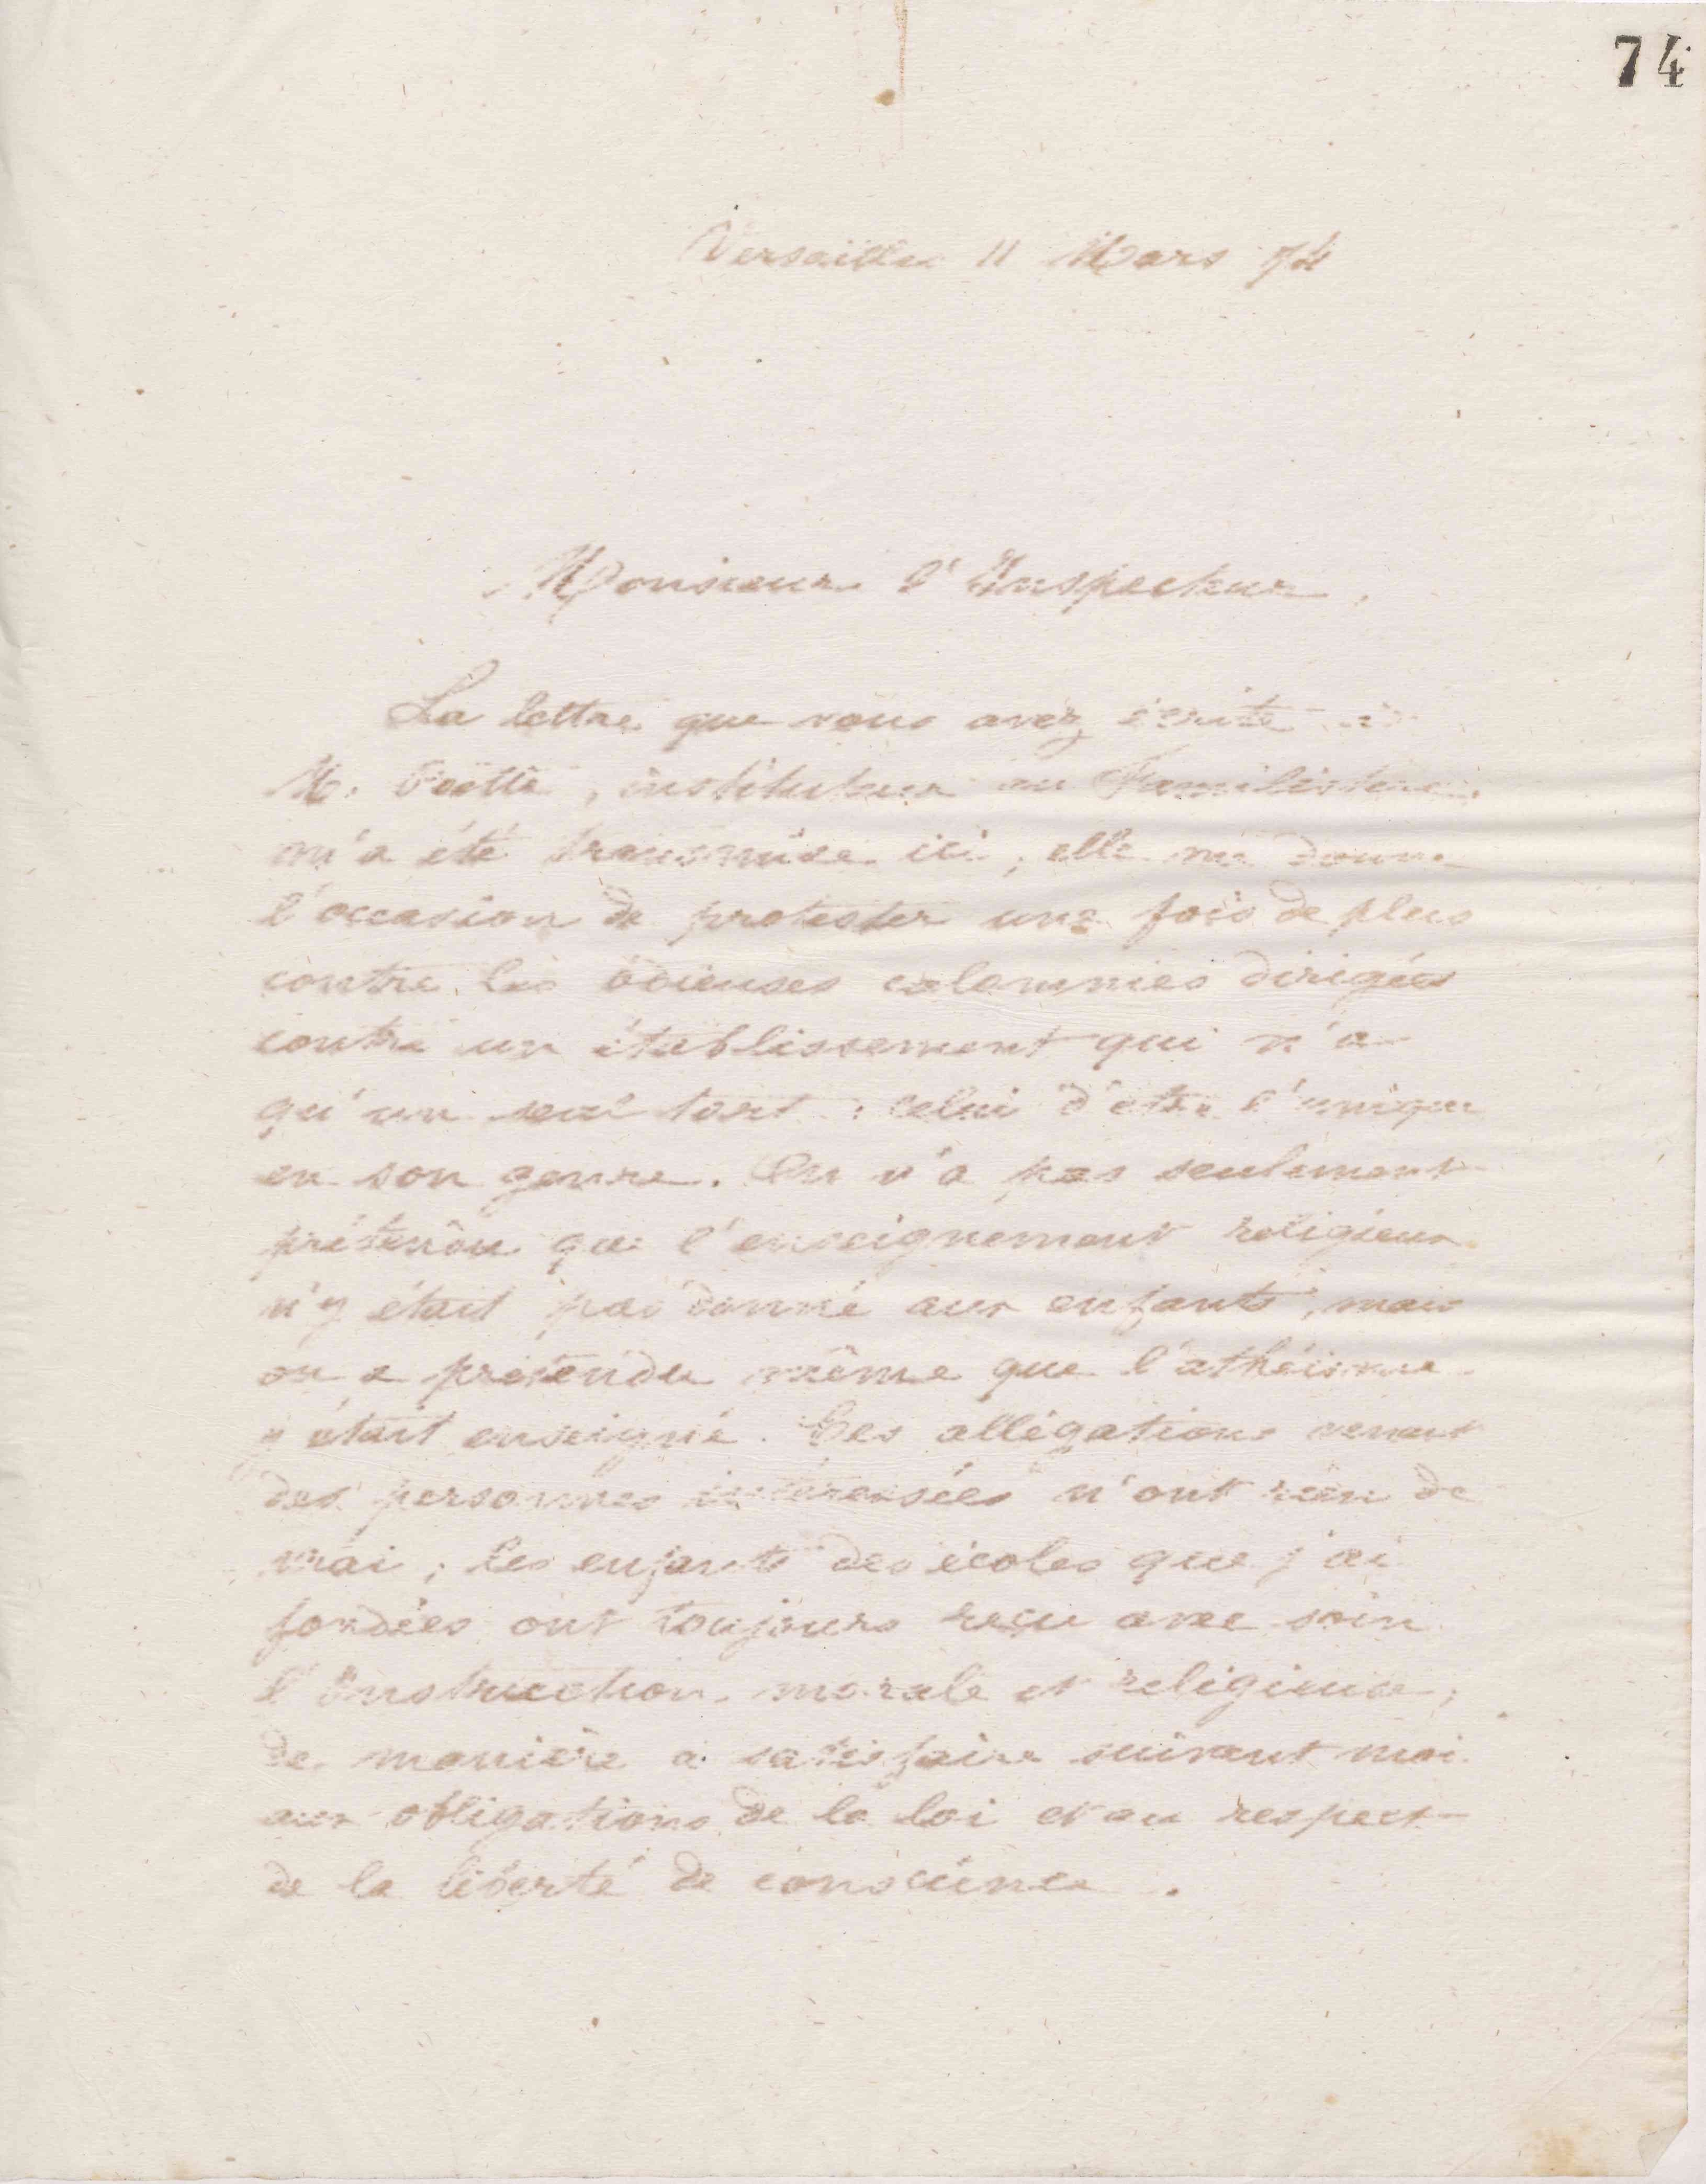 74
Versailles 11 Mars 74
Monsieur l'Inspecteur,
La lettre que vous avez écrite à
M. instituteur au Familistère,
m'a été transmise ici, elle me donne
l'occasion de protester une fois de plus
contre les odieuses calomnies dirigées
contre un établissement qui n'a
qu'un seul tort : celui d'être l'unique
en son genre. On n'a pas seulement
prétendu que l'enseignement religieux
n'y était pas donné aux enfants, mais
on a prétendu même que l'athéisme
y était enseigné. Ces allégations venant
des personnes intéressées n'ont rien de
vrai ; les enfants des écoles que j'ai
fondées ont toujours reçu avec soin
l'Instruction morale et religieuse,
de manière à satisfaire suivant moi
aux obligations de la loi et au respect
de la liberté de conscience.